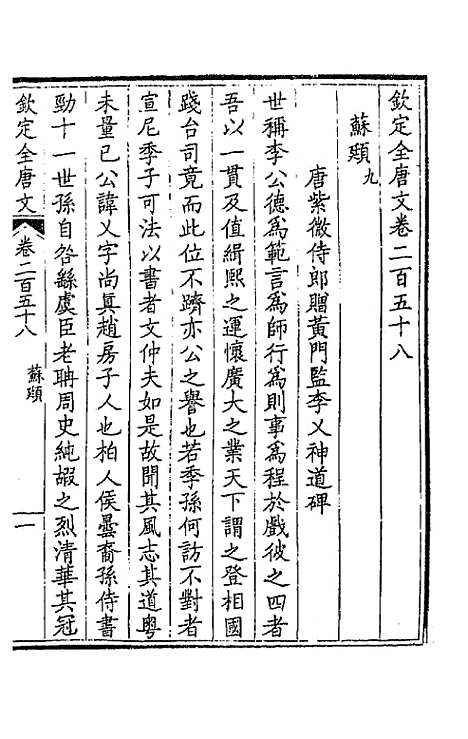 欽定全唐文卷二百五十八
蘇頲九
唐紫微侍郎贈黃門監李乂神道碑
世稱李公德爲範言爲師行爲則事爲程於戲彼之四者
吾以一貫及值緝熙之運懷廣大之業天下謂之登相國
踐台司竟而此位不躋亦公之譽也若季孫何訪不對者
宣尼季子可法以書者文仲夫如是故聞其風志其道粵
未量已公諱乂字尚真趙房子人也柏人侯曇裔孫侍書
勁十一世孫自咎繇虞臣老聃周史純嘏之烈清華其冠
欽定全唐文
卷二百五十八
蘇頲
一